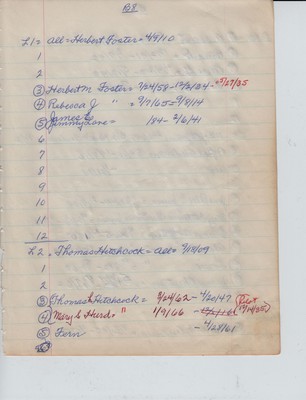 B8
L1 = all = Herbert Foster = 4/9/10
1
2
3 Herbert M. Foster = 7/24/58 - 12/2/34 -
4 Rebecca J " = 9/7/65 = 9/8/14
James
5 Jimmy Lore = 184 - 2/6/41
6
7
8
9
10
11
12
L2 = Thomas Hitchcock = all =
1
2
3 Thomas Hitchcock = 8/24/62 - 4/20/47
4 Mary C Hurd = " 1/9/66 -
5 Fern - 4/28/61